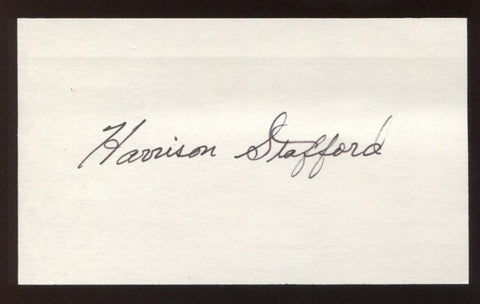 Harrison Stafford